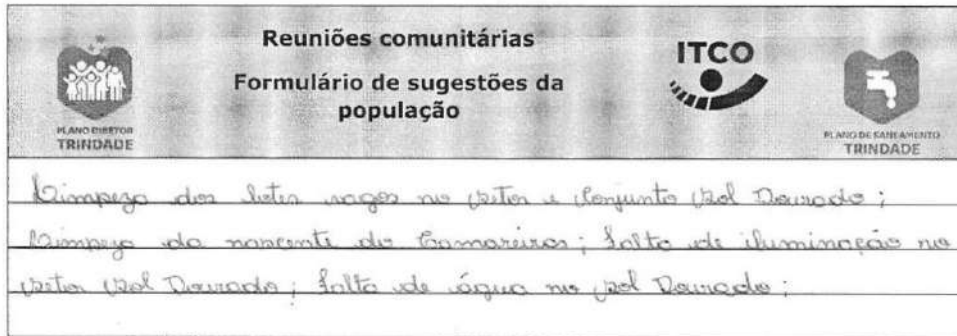 Reuniões comunitárias
Formulário de sugestões da
população
PLANO DIRETOR
TRINDADE
ITCO
PLANO DE SANEAMENTO
TRINDADE
Limpeza dos lotes vagos no Setor e Conjunto Sol Dourado;
Limpeza da nascente do Camareiras; falta de iluminação no
Setor Sol Dourado; falta de água no Sol Dourado;